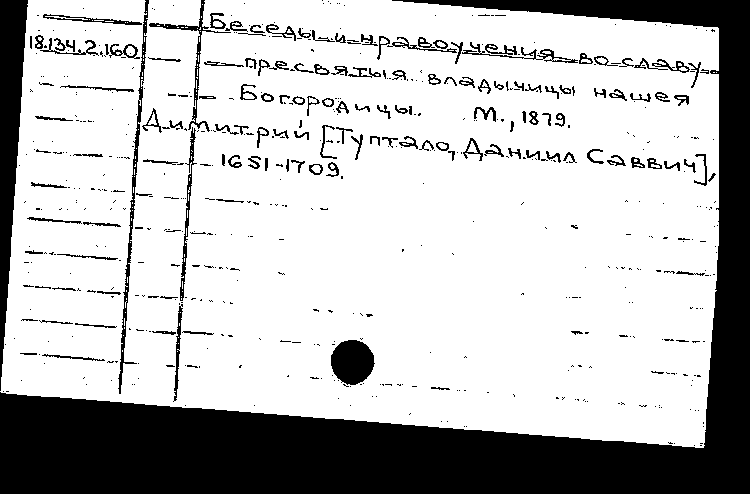 Беседы и нравоучения во славу
18.134.2.160
пресвятыя владычицы нашея
Богородицы. М., 1879.
Димитрий [Туптало, Даниил Саввич],
1651-1709.